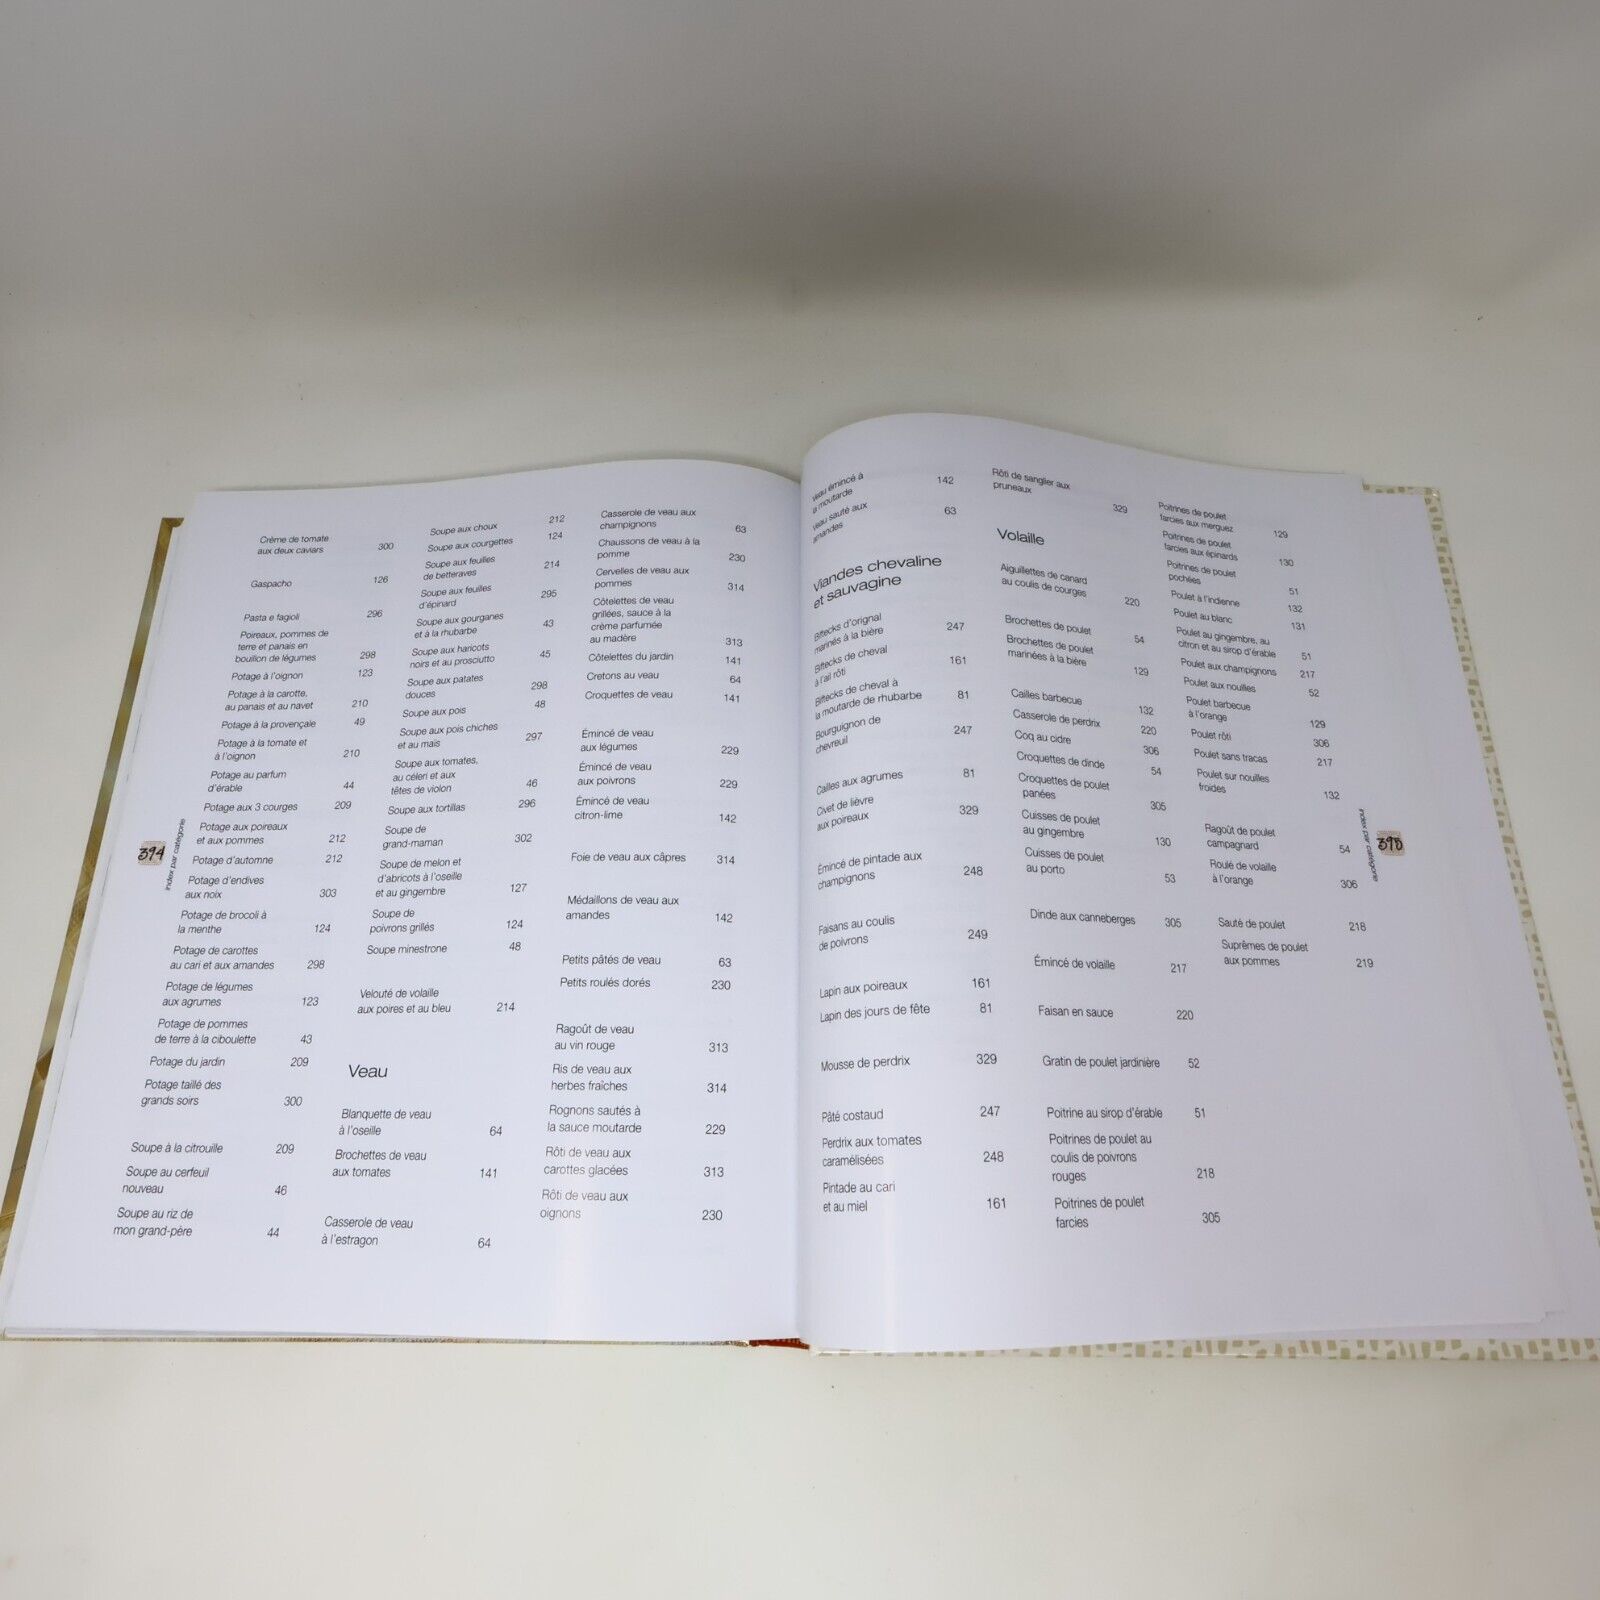 Crème de tomate
aux deux caviars 300
Gaspacho 126
Pasta e fagioli 296
Poireaux, pommes de
terre et panais en
bouillon de légumes 298
Potage à l'oignon 123
Potage à la carotte,
au panais et au navet 210
Potage à la provençale 49
Potage à la tomate et
à l'oignon 210
Potage au parfum
d'érable 44
Potage aux 3 courges 209
Potage aux poireaux
et aux pommes 212
Potage d'automne 212
Potage d'endives
aux noix 303
Potage de brocoli à
la menthe 124
Potage de carottes
au cari et aux amandes 298
Potage de légumes
aux agrumes 123
Potage de pommes
de terre à la ciboulette 43
Potage du jardin 209
Potage taillé des
grands soirs 300
Soupe à la citrouille 209
Soupe au cerfeuil
nouveau 46
Soupe au riz de
mon grand-père 44
394
index par catégorie
Soupe aux choux 212
Soupe aux courgettes 124
Soupe aux feuilles
de betteraves 214
Soupe aux feuilles
d'épinard 295
Soupe aux gourganes
et à la rhubarbe 43
Soupe aux haricots
noirs et au prosciutto 45
Soupe aux patates
douces 298
Soupe aux pois 48
Soupe aux pois chiches
et au maïs 297
Soupe aux tomates,
au céleri et aux
têtes de violon 46
Soupe aux tortillas 296
Soupe de
grand-maman 302
Soupe de melon et
d'abricots à l'oseille
et au gingembre 127
Soupe de
poivrons grillés 124
Soupe minestrone 48
Velouté de volaille
aux poires et au bleu 214
Veau
Blanquette de veau
à l'oseille 64
Brochettes de veau
aux tomates 141
Casserole de veau
à l'estragon 64
Casserole de veau aux
champignons 63
Chaussons de veau à la
pomme 230
Cervelles de veau aux
pommes 314
Côtelettes de veau
grillées, sauce à la
crème parfumée
au madère 313
Côtelettes du jardin 141
Cretons au veau 64
Croquettes de veau 141
Émincé de veau
aux légumes 229
Émincé de veau
aux poivrons 229
Émincé de veau
citron-lime 142
Foie de veau aux câpres 314
Médaillons de veau aux
amandes 142
Petits pâtés de veau 63
Petits roulés dorés 230
Ragoût de veau
au vin rouge 313
Ris de veau aux
herbes fraîches 314
Rognons sautés à
la sauce moutarde 229
Rôti de veau aux
carottes glacées 313
Rôti de veau aux
oignons 230
Veau émincé à
la moutarde 142
Veau sauté aux
amandes 63
Viandes chevaline
et sauvagine
Biftecks d'orignal
marinés à la bière 247
Biftecks de cheval
à l'ail rôti 161
Biftecks de cheval à
la moutarde de rhubarbe 81
Bourguignon de
chevreuil 247
Cailles aux agrumes 81
Civet de lièvre
aux poireaux 329
Émincé de pintade aux
champignons 248
Faisans au coulis
de poivrons 249
Lapin aux poireaux 161
Lapin des jours de fête 81
Mousse de perdrix 329
Pâté costaud 247
Perdrix aux tomates
caramélisées 248
Pintade au cari
et au miel 161
Rôti de sanglier aux
pruneaux 329
Volaille
Aiguillettes de canard
au coulis de courges 220
Brochettes de poulet 54
Brochettes de poulet
marinées à la bière 129
Cailles barbecue 132
Casserole de perdrix 220
Coq au cidre 306
Croquettes de dinde 54
Croquettes de poulet
panées 305
Cuisses de poulet
au gingembre 130
Cuisses de poulet
au porto 53
Dinde aux canneberges 305
Émincé de volaille 217
Faisan en sauce 220
Gratin de poulet jardinière 52
Poitrine au sirop d'érable 51
Poitrines de poulet au
coulis de poivrons
rouges 218
Poitrines de poulet
farcies 305
Poitrines de poulet
farcies aux merguez 129
Poitrines de poulet
farcies aux épinards 130
Poitrines de poulet
pochées 51
Poulet à l'indienne 132
Poulet au blanc 131
Poulet au gingembre, au
citron et au sirop d'érable 51
Poulet aux champignons 217
Poulet aux nouilles 52
Poulet barbecue
à l'orange 129
Poulet rôti 306
Poulet sans tracas 217
Poulet sur nouilles
froides 132
Ragoût de poulet
campagnard 54
Roulé de volaille
à l'orange 306
Sauté de poulet 218
Suprêmes de poulet
aux pommes 219
index par catégorie
395